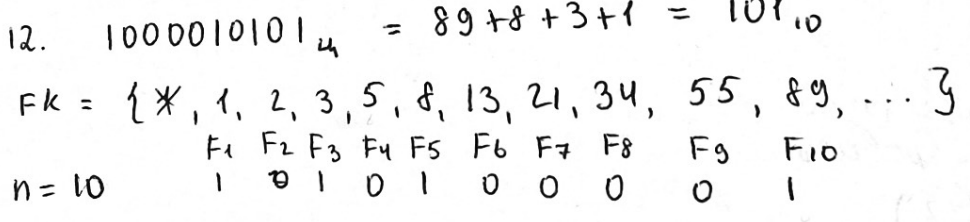 12. 1000010101ц = 89+8+3+1 = 101₁₀
Fk = {*, 1, 2, 3, 5, 8, 13, 21, 34, 55, 89, ... }
F1 F2 F3 F4 F5 F6 F7 F8 F9 F10
n = 10 1 0 1 0 1 0 0 0 0 1